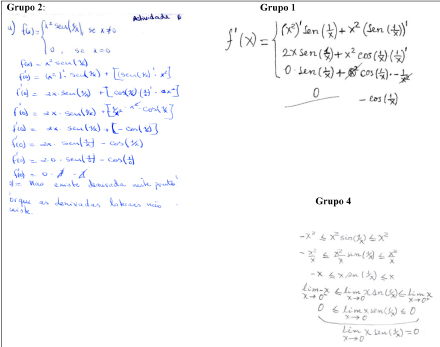 Grupo 2:
Actividade 6
a) f(x) = { x² sen(1/x), se x ≠ 0
0, se x = 0
f(x) = x² sen(1/x)
f'(x) = (x²)' · sen(1/x) + [(sen(1/x))' · x²]
f'(x) = 2x · sen(1/x) + [cos(1/x)
f'(x) = 2x · sen(1/x) + [ cos(1/x)]
f'(x) = 2x · sen(1/x) + [- cos(1/x)]
f'(0) = 2x · sen(1/x) - cos(1/x)
f'(0) = 2·0 · sen(1/0) - cos(1/0)
f'(0) = 0 ·
Não existe derivada neste ponto
Porque as derivadas laterais não
existe.
Grupo 1
f'(x) = { (x²)' sen(1/x) + x² (sen(1/x))'
2x sen(1/x) + x² cos(1/x)(1/x)'
0 · sen(1/x) + cos(1/x) · -1/x²
0 - cos(1/x)
Grupo 4
-x² ≤ x² sin(1/x) ≤ x²
-x²/x ≤ x²/x sin(1/x) ≤ x²/x
-x ≤ x sen(1/x) ≤ x
lim -x x→0⁺ ≤ lim x sen(1/x) x→0 ≤ lim x x→0⁺
0 ≤ lim x sen(1/x) x→0 ≤ 0
lim x sen(1/x) = 0 x→0